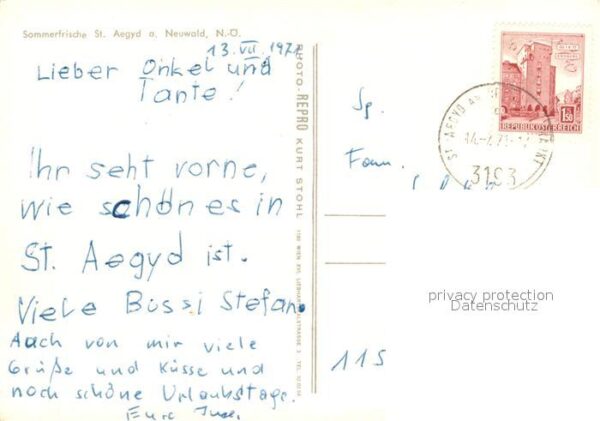 Sommerfrische St. Aegyd a. Neuwald, N.-Ö.
13. VII. 1971
Lieber Onkel und
Tante!
Ihr seht vorne,
wie schön es in
St. Aegyd ist.
Viele Bussi Stefan.
Auch von mir viele
Grüße und Küsse und
noch schöne Urlaubstage.
Eure
PHOTO-REPRO KURT STOHL
Sp.
Fam.
115
1.50
REPUBLIK ÖSTERREICH
ST. AEGYD AM
3193
privacy protection
Datenschutz